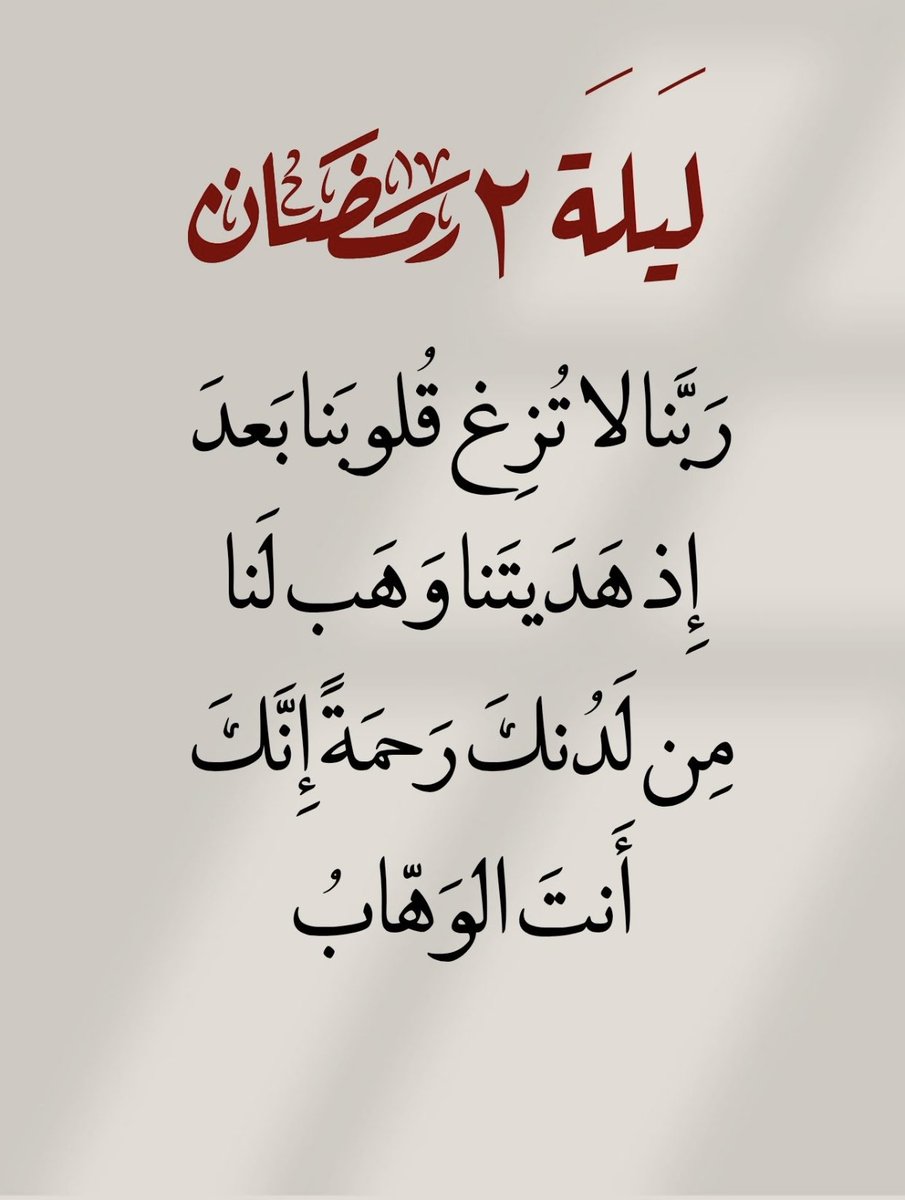 لَيَلَةَ ٢ رَمَضَان
رَبَّنا لا تُزِغ قُلوبَنا بَعدَ
إِذ هَدَيتَنا وَهَب لَنا
مِن لَدُنكَ رَحمَةً إِنَّكَ
أَنتَ الوَهّابُ